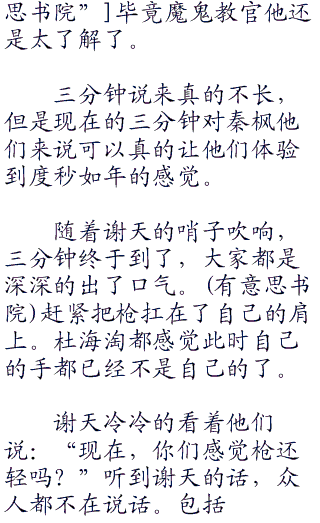 思书院”]毕竟魔鬼教官他还
是太了解了。
三分钟说来真的不长，
但是现在的三分钟对秦枫他
们来说可以真的让他们体验
到度秒如年的感觉。
随着谢天的哨子吹响，
三分钟终于到了，大家都是
深深的出了口气。(有意思书
院)赶紧把枪扛在了自己的肩
上。杜海洵都感觉此时自己
的手都已经不是自己的了。
谢天冷冷的看着他们
说：“现在，你们感觉枪还
轻吗？”听到谢天的话，众
人都不在说话。包括